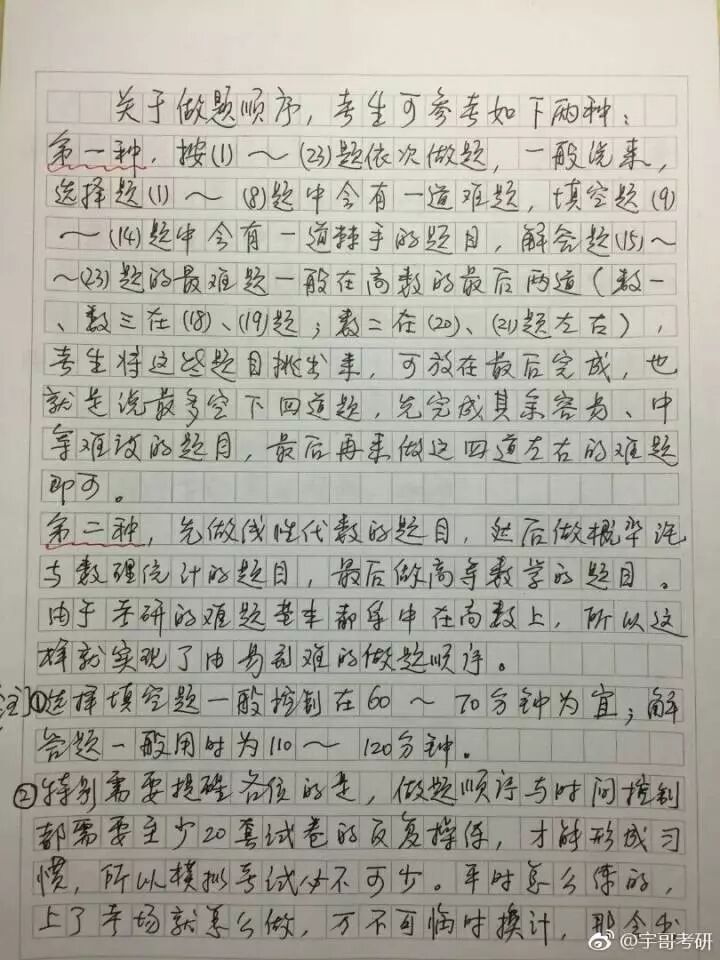 关于做题顺序，考生可参考如下两种：
第一种，按(1)～(23)题依次做题，一般说来，
选择题(1)～(8)题中会有一道难题，填空题(9)
～(14)题中会有一道棘手的题目，解答题(15)～
～(23)题的最难题一般在高数的最后两道（数一
、数三在(18)、(19)题；数二在(20)、(21)题左右），
考生将这些题目挑出来，可放在最后完成，也
就是说最多空下四道题，先完成其余容易、中
等难度的题目，最后再来做这四道左右的难题
即可。
第二种，先做线性代数的题目，然后做概率论
与数理统计的题目，最后做高等数学的题目。
由于考研的难题基本都集中在高数上，所以这
样就实现了由易到难的做题顺序。
注]①选择填空题一般控制在60～70分钟为宜；解
答题一般用时为110～120分钟。
②特别需要提醒各位的是，做题顺序与时间控制
都需要至少20套试卷的反复操练，才能形成习
惯，所以模拟考试必不可少。平时怎么练的，
上了考场就怎么做，万不可临时换计，那会出
@宇哥考研